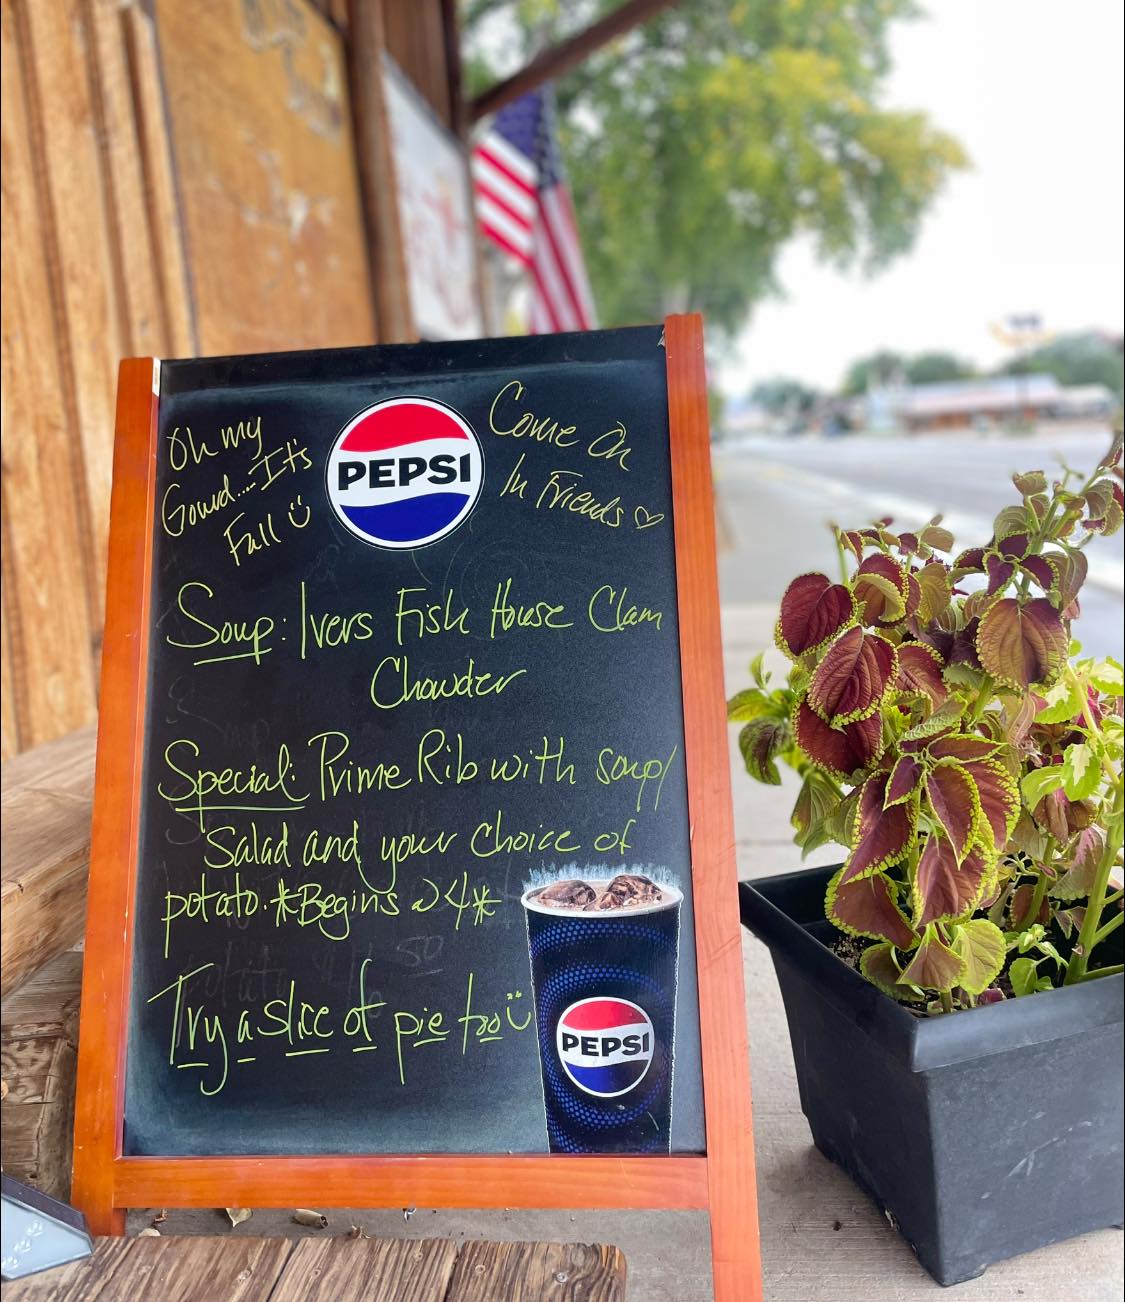 Oh my
Gourd....It's
Fall
PEPSI
Come On
In Friends ♡
Soup: Ivers Fish House Clam
Chowder
Special: Prime Rib with soup/
Salad and your choice of
potato.*Begins @4*
Try a slice of pie too
PEPSI